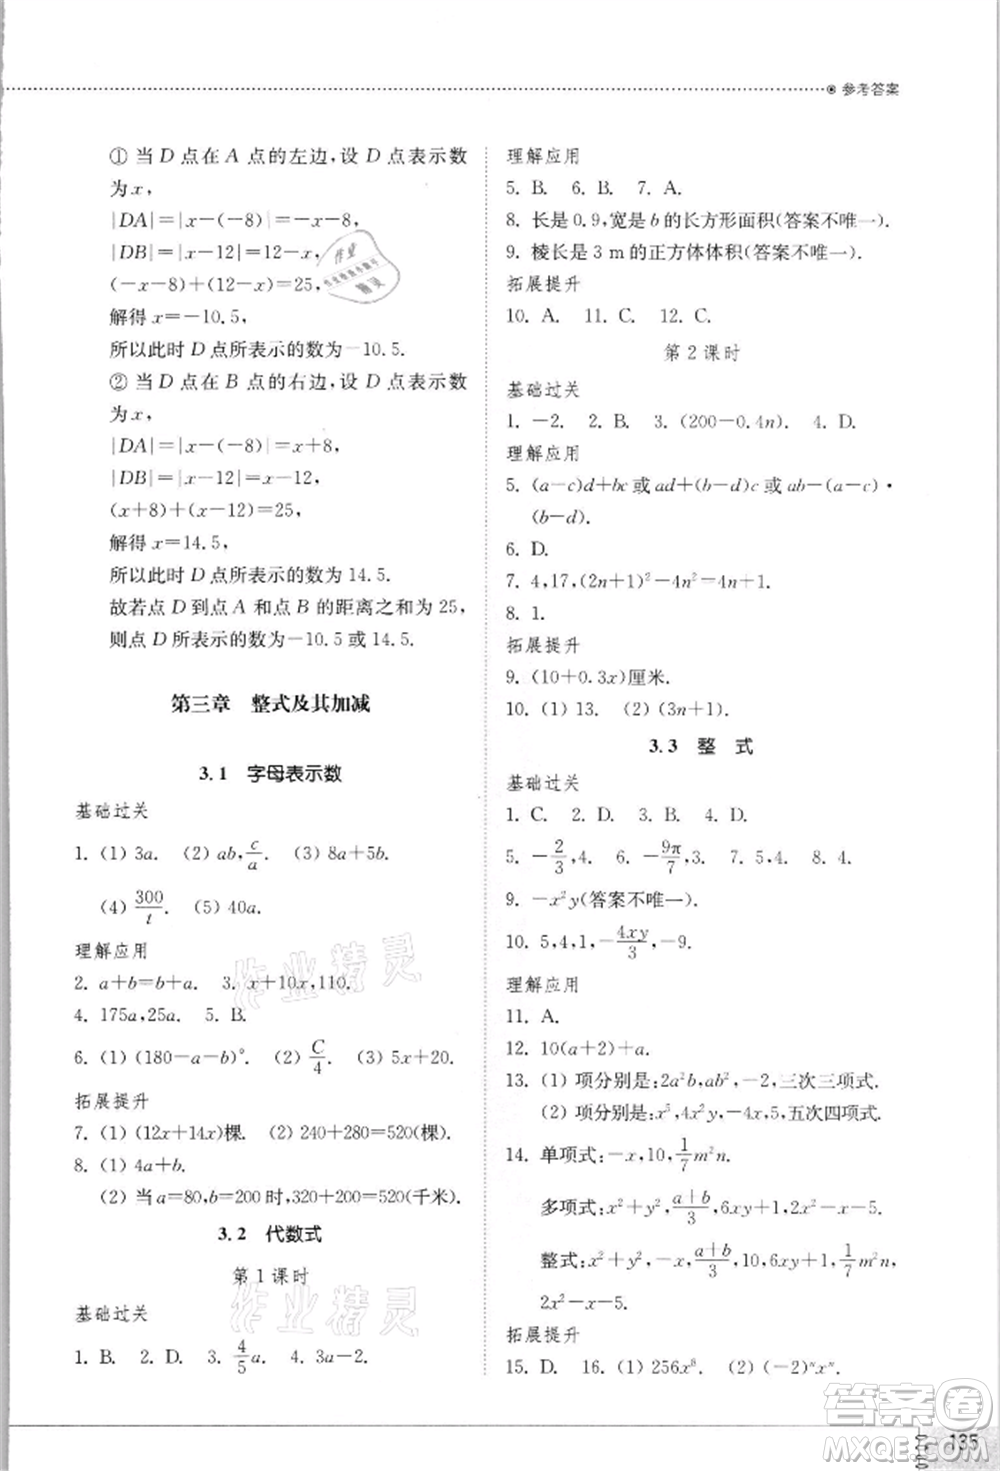 参考答案
① 当 D 点在 A 点的左边,设 D 点表示数
为 x,
|DA|=|x-(-8)|=-x-8,
|DB|=|x-12|=12-x,
(-x-8)+(12-x)=25,
解得 x=-10.5,
所以此时 D 点所表示的数为-10.5.
② 当 D 点在 B 点的右边,设 D 点表示数
为 x,
|DA|=|x-(-8)|=x+8,
|DB|=|x-12|=x-12,
(x+8)+(x-12)=25,
解得 x=14.5,
所以此时 D 点所表示的数为 14.5.
故若点 D 到点 A 和点 B 的距离之和为 25,
则点 D 所表示的数为-10.5 或 14.5.
第三章 整式及其加减
3.1 字母表示数
基础过关
1. (1) 3a. (2) ab, c/a. (3) 8a+5b.
(4) 300/t. (5) 40a.
理解应用
2. a+b=b+a. 3. x+10x,110.
4. 175a,25a. 5. B.
6. (1) (180-a-b)°. (2) C/4. (3) 5x+20.
拓展提升
7. (1) (12x+14x)棵. (2) 240+280=520(棵).
8. (1) 4a+b.
(2) 当 a=80,b=200 时,320+200=520(千米).
3.2 代数式
第 1 课时
基础过关
1. B. 2. D. 3. 4/5 a. 4. 3a-2.
理解应用
5. B. 6. B. 7. A.
8. 长是 0.9,宽是 b 的长方形面积(答案不唯一).
9. 棱长是 3 m 的正方体体积(答案不唯一).
拓展提升
10. A. 11. C. 12. C.
第 2 课时
基础过关
1. -2. 2. B. 3. (200-0.4n). 4. D.
理解应用
5. (a-c)d+bc 或 ad+(b-d)c 或 ab-(a-c)·
(b-d).
6. D.
7. 4,17,(2n+1)²-4n²=4n+1.
8. 1.
拓展提升
9. (10+0.3x)厘米.
10. (1) 13. (2) (3n+1).
3.3 整 式
基础过关
1. C. 2. D. 3. D. 4. B.
5. -2/3. 6. -9π/7. 7. 5. 8. 4.
9. -x²y(答案不唯一).
10. 5,4,1,-4xy/3,-9.
理解应用
11. A.
12. 10(a+2)+a.
13. (1) 项分别是:2a²b,ab²,-2,三次三项式.
(2) 项分别是:x⁵,4x²y,-4x,5,五次四项式.
14. 单项式:-x,10,1/7 m²n.
多项式:x²+y², (a+b)/3, 6xy+1,2x²-x-5.
整式:x²+y²,-x, (a+b)/3, 10,6xy+1, 1/7 m²n,
2x²-x-5.
拓展提升
15. D. 16. (1) 256x⁸. (2) (-2)ⁿxⁿ.
135
作业精灵
作业精灵
答案卷
MXQE.COM